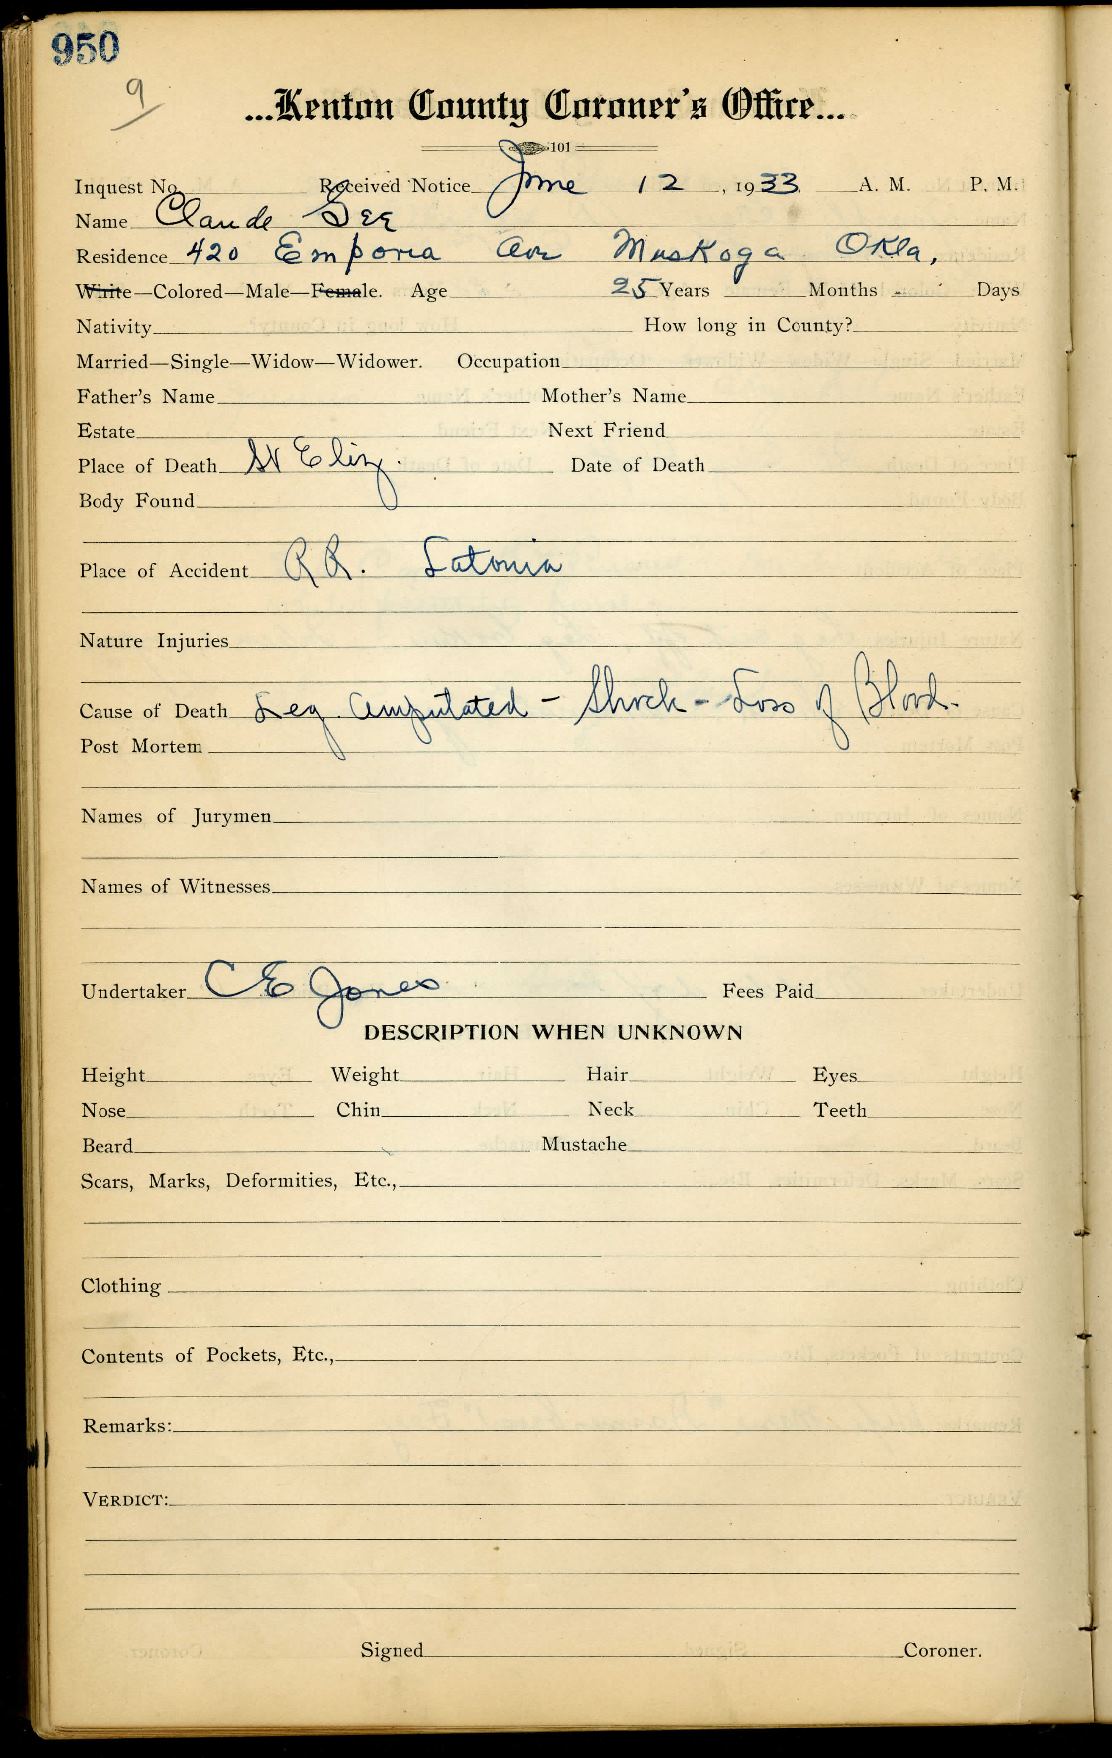 950
9
...Kenton County Coroner's Office...
101
Inquest No. Received Notice June 12, 1933 A. M. P. M.
Name Claude Gee
Residence 420 Emporia Ave Muskoga Okla,
White—Colored—Male—Female. Age 25 Years Months - Days
Nativity How long in County?
Married—Single—Widow—Widower. Occupation
Father's Name Mother's Name
Estate Next Friend
Place of Death St Eliz.
Date of Death
Body Found
Place of Accident R R. Latonia
Nature Injuries
Cause of Death Leg. Amputated - Shock - Loss of Blood.
Post Mortem
Names of Jurymen
Names of Witnesses
Undertaker C E Jones Fees Paid
DESCRIPTION WHEN UNKNOWN
Height Weight Hair Eyes
Nose Chin Neck Teeth
Beard Mustache
Scars, Marks, Deformities, Etc.,
Clothing
Contents of Pockets, Etc.,
Remarks:
VERDICT:
Signed Coroner.